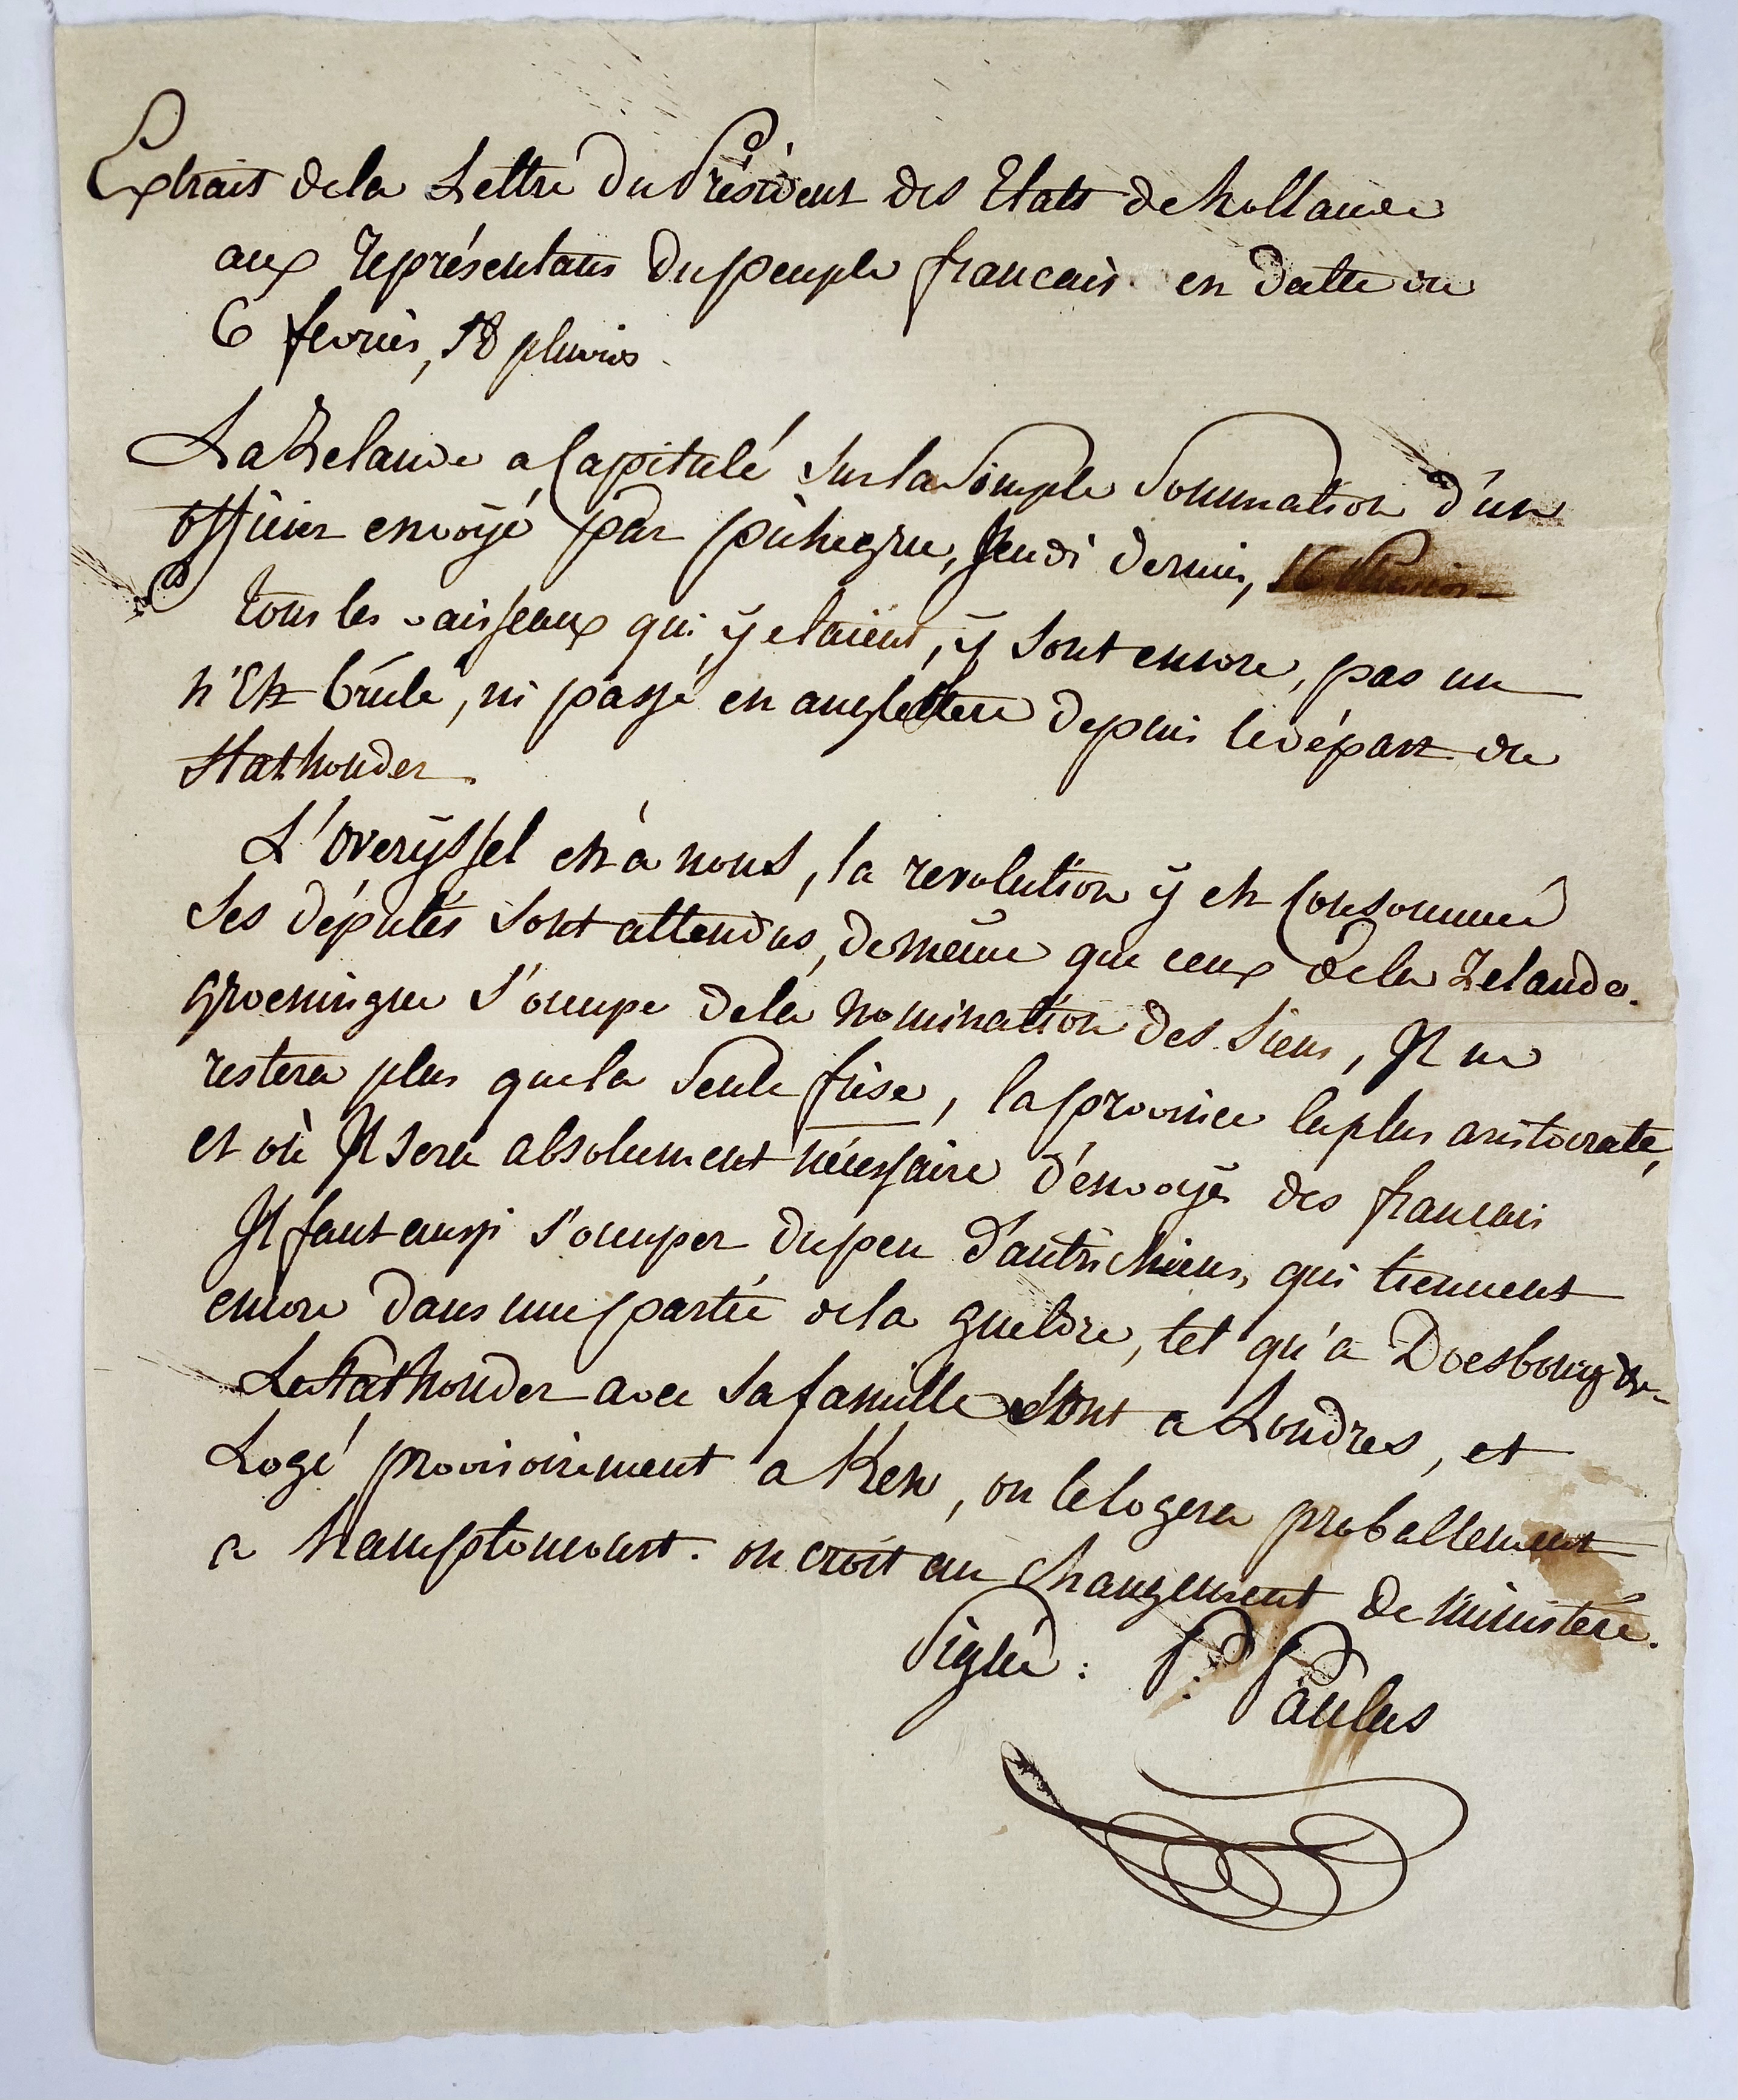 Extrait de la Lettre du Président des Etats de hollande
aux représentans du peuple francais en datte du
6 fevrier, 18 pluvios
La Zelande a Capitulé Sur la Simple Sommation d'un
officier envoyé par pichegru, Jeudi dernier,
tous les vaisseaux qui y etaient, y sont encore, pas un
n'est brulé, ni passé en angleterre depuis le départ du
stathouder.
L'overÿssel est à nous, la revolution y est Consommé
Ses députés sont attendus, de même que ceux de la Zelande.
groeningue s'occupe de la nomination des siens, Il ne
restera plus que la Seule frise, la province la plus aristocrate,
et où Il sera absolument nécessaire d'envoyé des francais
Il faut aussi s'occuper du peu d'autrichiens, qui tiennent
encore dans une partie de la gueldre, tel qu'a Doesbourg &c.
Le stathouder avec sa famille sont a Londres, et
Logé provisoirement a Kew, on le logera proballement
a hamptoncourt. on croit au changement de ministere.
Signé : P: Paulus